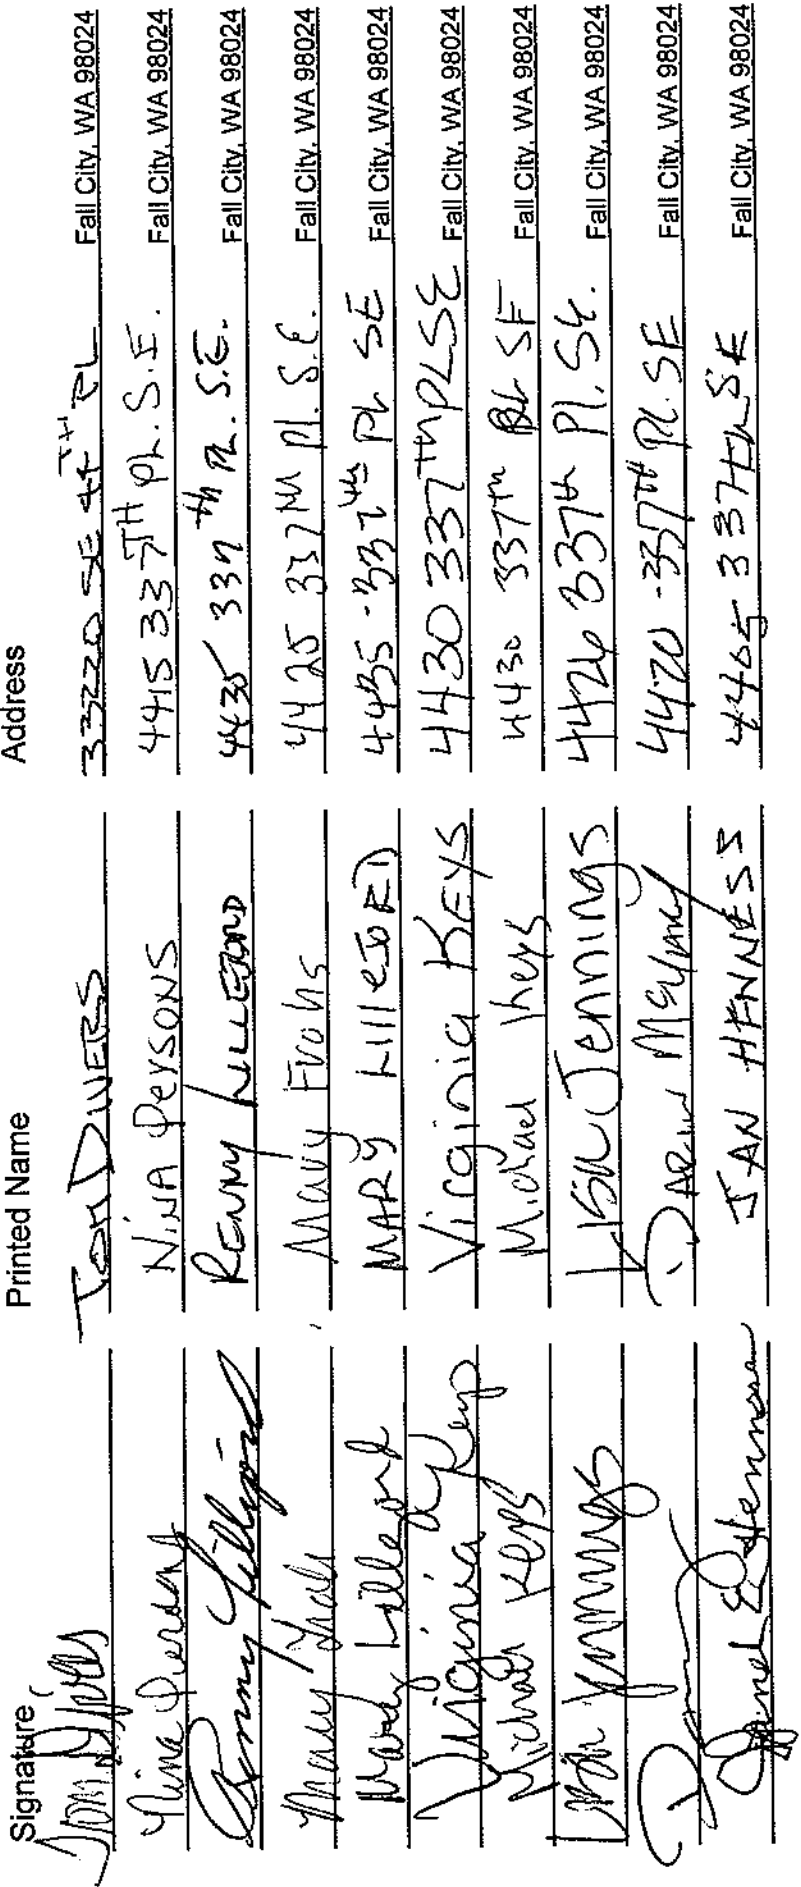 Signature Printed Name Address
Tom Divers TOM DIVERS 33220 SE 44TH PL Fall City, WA 98024
Nina Persons NINA PERSONS 4415 337TH PL. S.E. Fall City, WA 98024
Renny Lillejord RENNY LILLEJORD 4435 337th PL. S.E. Fall City, WA 98024
Mary Frohs Mary Frohs 4425 337th Pl. S.E. Fall City, WA 98024
Mary Lillejord MARY LILLEJORD 4435 - 337th PL SE Fall City, WA 98024
Virginia Keys Virginia KEYS 4430 337TH PL SE Fall City, WA 98024
Michael Keys Michael Keys 4430 337th PL SE Fall City, WA 98024
Lisa Jennings LISA Jennings 4426 337th Pl. SE. Fall City, WA 98024
4420 - 337TH PL. SE Fall City, WA 98024
Janet E Henness JAN HENNESS 4405 337th SE Fall City, WA 98024